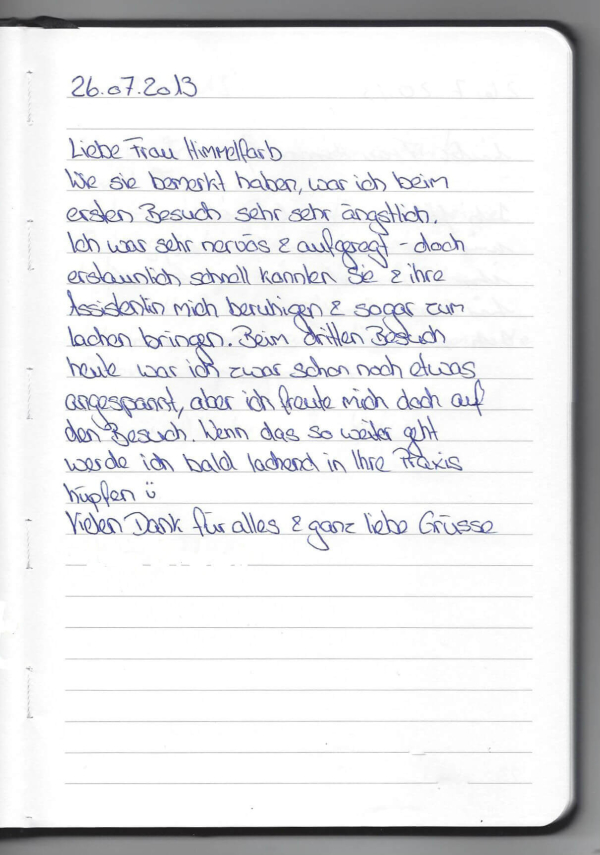 26.07.2013
Liebe Frau Himmelfarb
Wie sie bemerkt haben, war ich beim
ersten Besuch sehr sehr ängstlich.
Ich war sehr nervös & aufgeregt - doch
erstaunlich schnell konnten Sie & ihre
Assistentin mich beruhigen & sogar zum
lachen bringen. Beim dritten Besuch
heute war ich zwar schon noch etwas
angespannt, aber ich freute mich doch auf
den Besuch. Wenn das so weiter geht
werde ich bald lachend in Ihre Praxis
hüpfen ü
Vielen Dank für alles & ganz liebe Grüsse